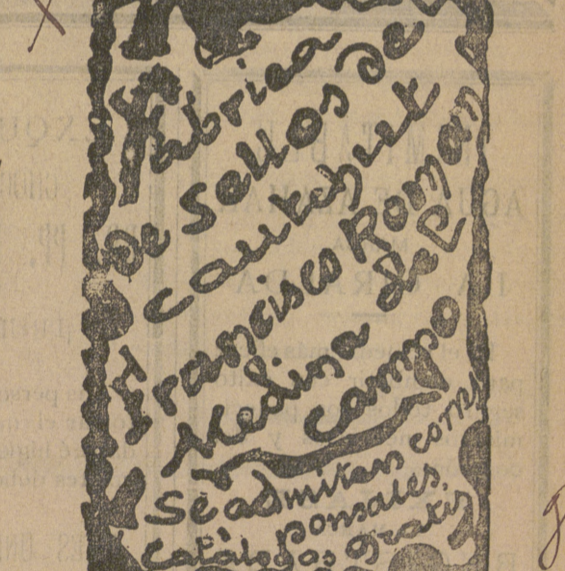 Fabrica
de Sellos de
cautchut
Francisco Roman
Medina del
campo
Se admiten corres
ponsales.
Catálogos gratis